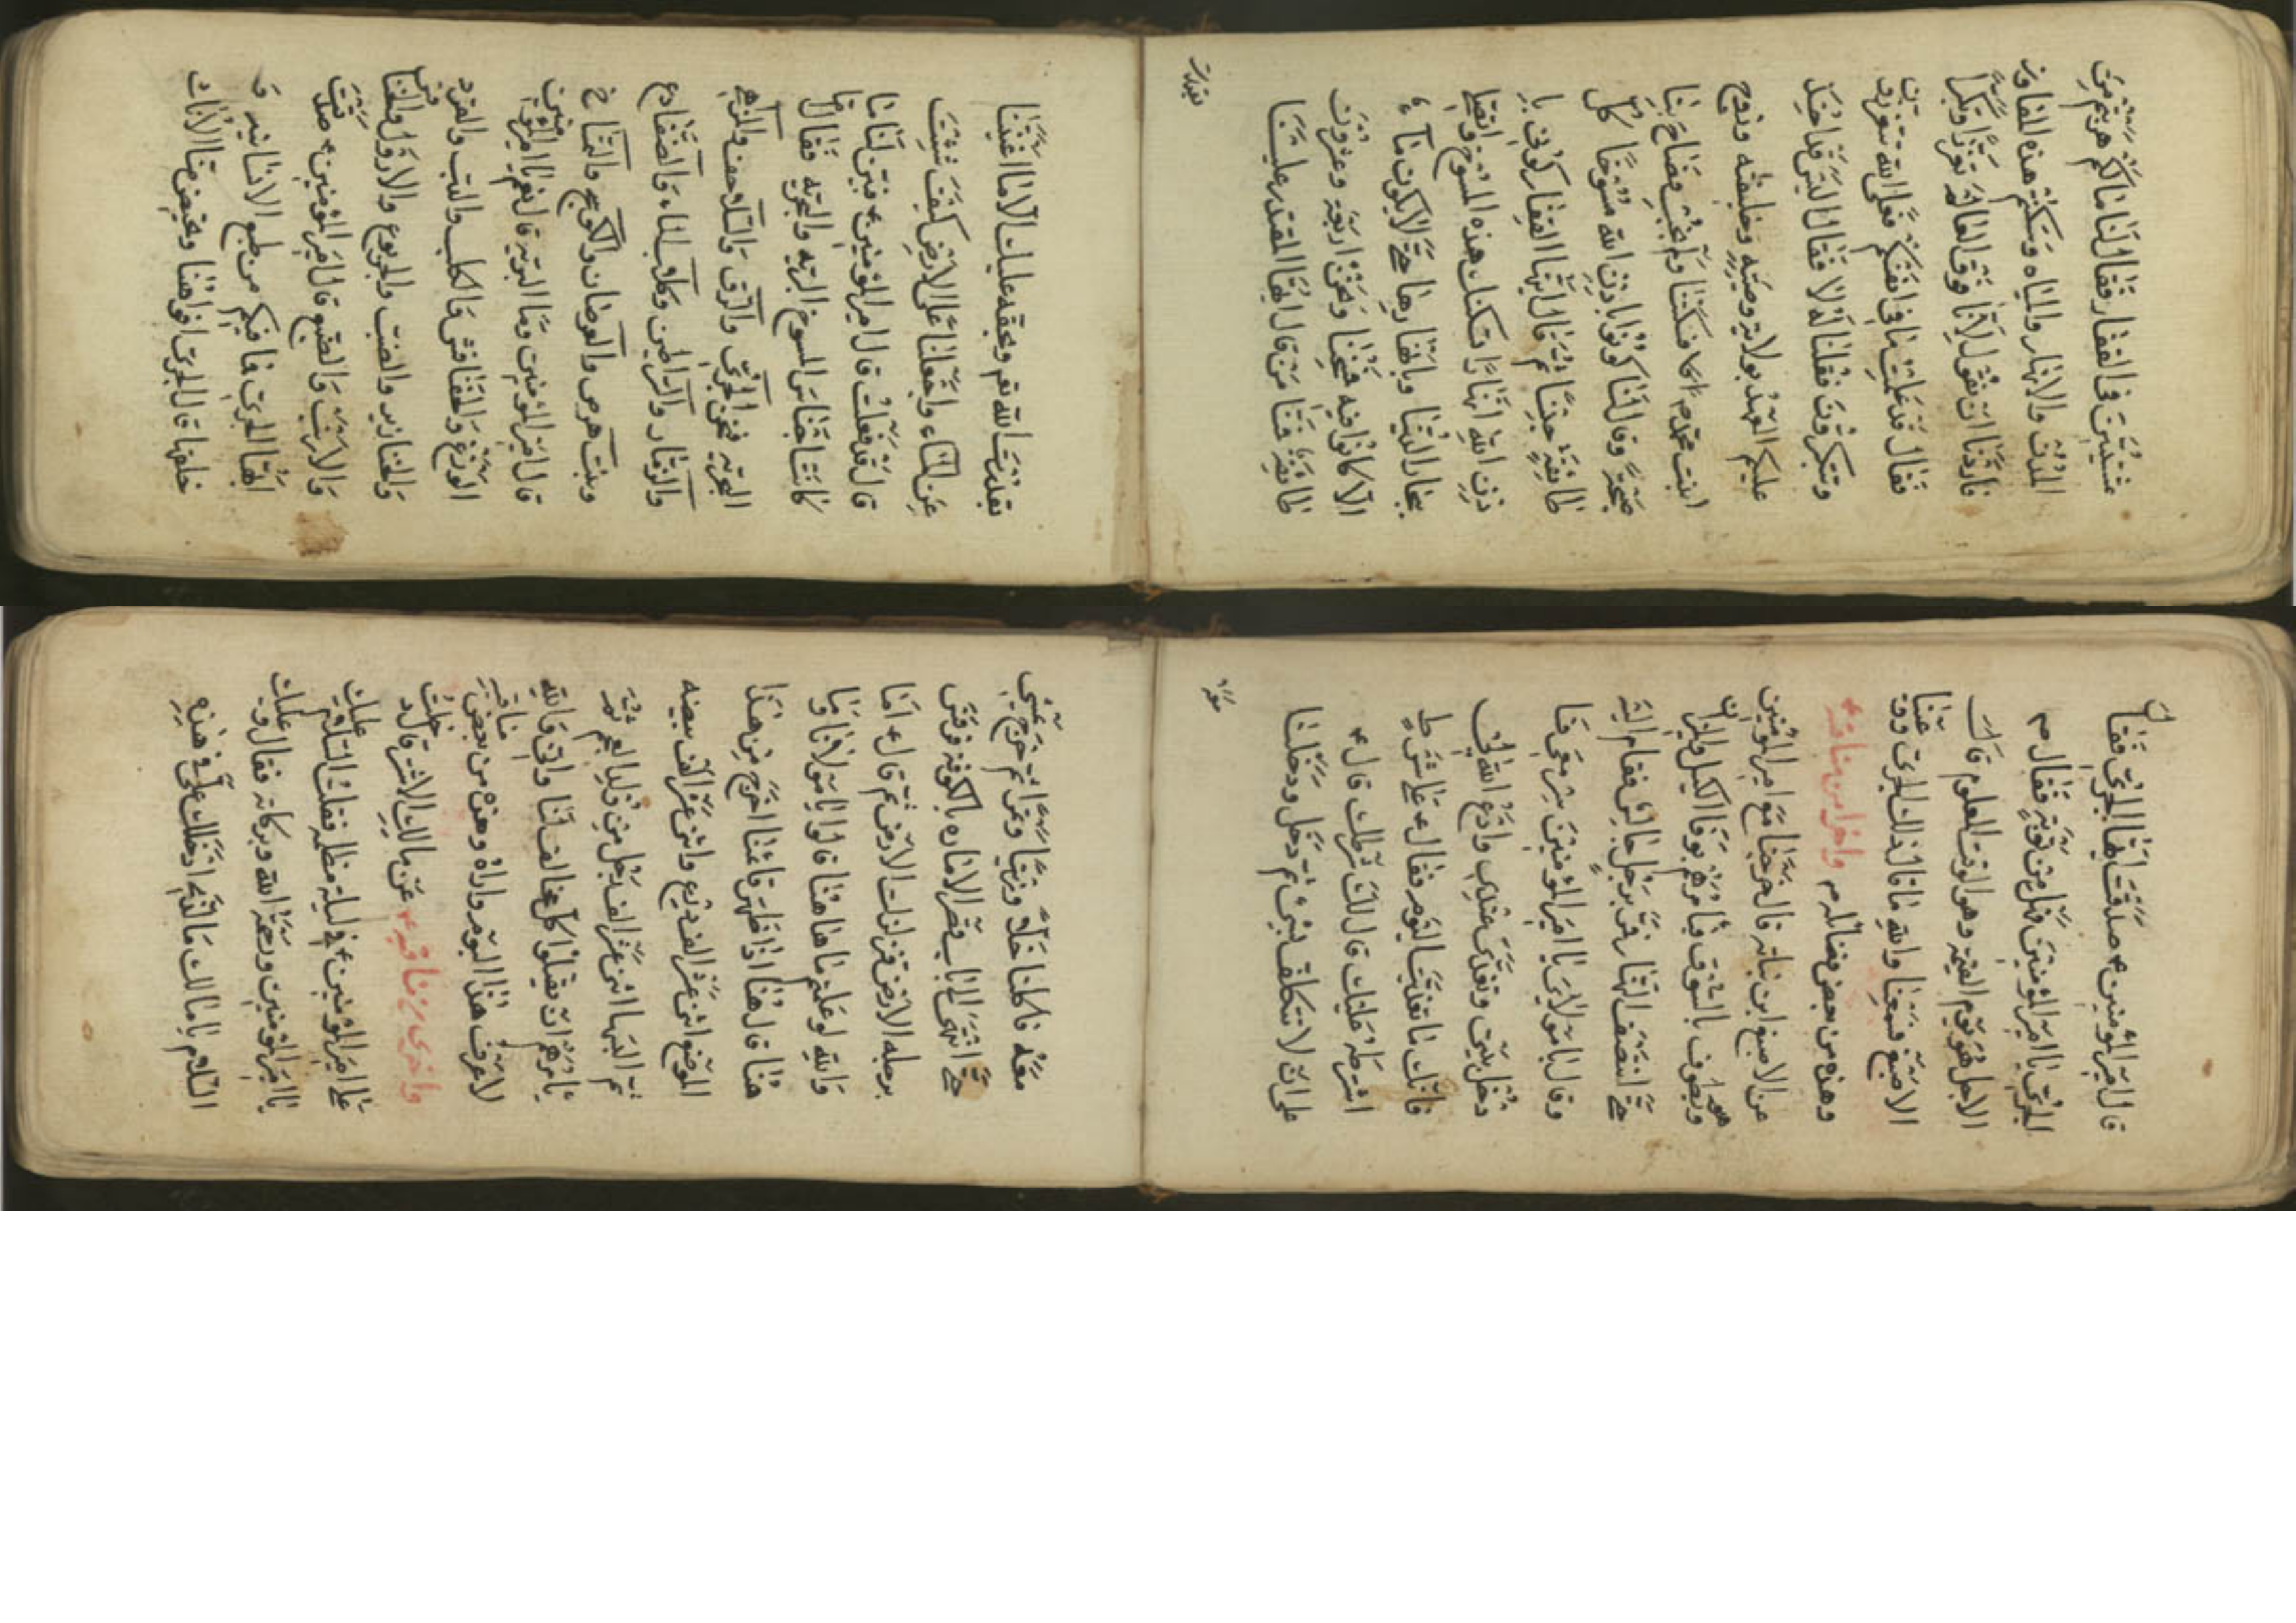 عشيتين في القفار فقال لنا مالكم هربتم من
المدن والانهار والمياه وسكنتم هذه المفاوز
فاردنا ان نقول لانا فوق العالم تعززا وتكبرا
فقال قد علمت ما في انفسكم فعلى الله تتعززون
وتتكبرون فقلنا له لا فقال اليس قد اخذ
عليكم العهد بولاية وصيه وخليفته وزوج
ابنت محمد فسكتنا ولم نجب فصاح بنا
صيحة وقال لنا كونوا باذن الله مسوخا كل
طائفة جنسا ثم قال ايتها القفار كوني با
ذن الله انهارا تسكنك هذه المسوخ واتصلي
ببحار الدنيا وبانهارها حتى لا يكون ماء
الا كانوا فيه فمسخنا ونحن اربعة وعشرون
طائفة فمنا من قال ايها المقتدر علينا
بقدرت
بقدرت الله تعم وبحقه عليك الا ما اغنيتنا
عن الماء واجعلنا على الارض كيف شئت
قال قد فعلت قال امير المؤمنين ع فبين لنا ما
كانت اجناس المسوخ البريه والبحريه فقال اما
البحريه فنحن الجري والرق والسلاحف والمارماهي
والزمار والسراطين وكلاب الماء والضفادع
وبنت هرس والعرضان والكوسج والتمساح
قال امير المؤمنين وما البريه قال نعم يا امير المؤمنين
الوزغ والخنافس والكلب والدب والقرد
والخنازير والضب والورل والخفاش
والارنب والضبع قال امير المؤمنين ع صدقت
ايها الجري فما فيكم من طبع الانسانيه و
خلقها قال الجري افواهنا وبعض منا الاناث
قال امير المؤمنين ع صدقت ايها الجري فقال
الجري يا امير المؤمنين فهل من توبة فقال ع
الاجل هو يوم القيمه وهو الوقت المعلوم قال
الاصبغ فسمعنا والله ما قال ذلك الجري
وهذه من بعض فضائله ع واخرا من مناقبه ع
عن الاصبغ ابن نباته قال خرجنا مع امير المؤمنين
وهو يطوف بالسوق فيامرهم بوفاء الكيل والميزان
حتى انتصف النهار فمر برجل جالس فقام اليه
وقال يا مولاي يا امير المؤمنين سر معي فا
دخل بيتي وتغدى عندي وادع الله لي
فانك ما تغديت اليوم فقال ع على شرط
اشرطه عليك قال لك شرطك قال ع
على ان لا تتكلف بشئ ثم دخل ودخلنا
معه
معه فاكلنا خلا وزيتا وتمرا ثم خرج يمشي
حتى انتهى الى باب قصر الاماره بالكوفه فركض
برجله الارض فتزلزلت الارض ثم قال ع اما
والله لو علمتم ما هاهنا قالوا يا مولانا وما
هنا قال هنا اذا ظهر قائمنا اخرج من هذا
الموضع اثني عشر الف درع واثني عشر الف بيضه
ثم البسها اثني عشر الف رجل من ولد العجم ثم
يامرهم ان يقتلوا كل مخالف لنا واني والله
لاعرف هذا اليوم واراه وهذه من بعض مناقبه
واخرى من مناقبه ع عن مالك الاشتر قال دخلت
على امير المؤمنين ع في ليلة مظلمه فقلت السلام عليك
يا امير المؤمنين ورحمة الله وبركاته فقال وعليك
السلام يا مالك ما الذي ادخلك علي في هذه